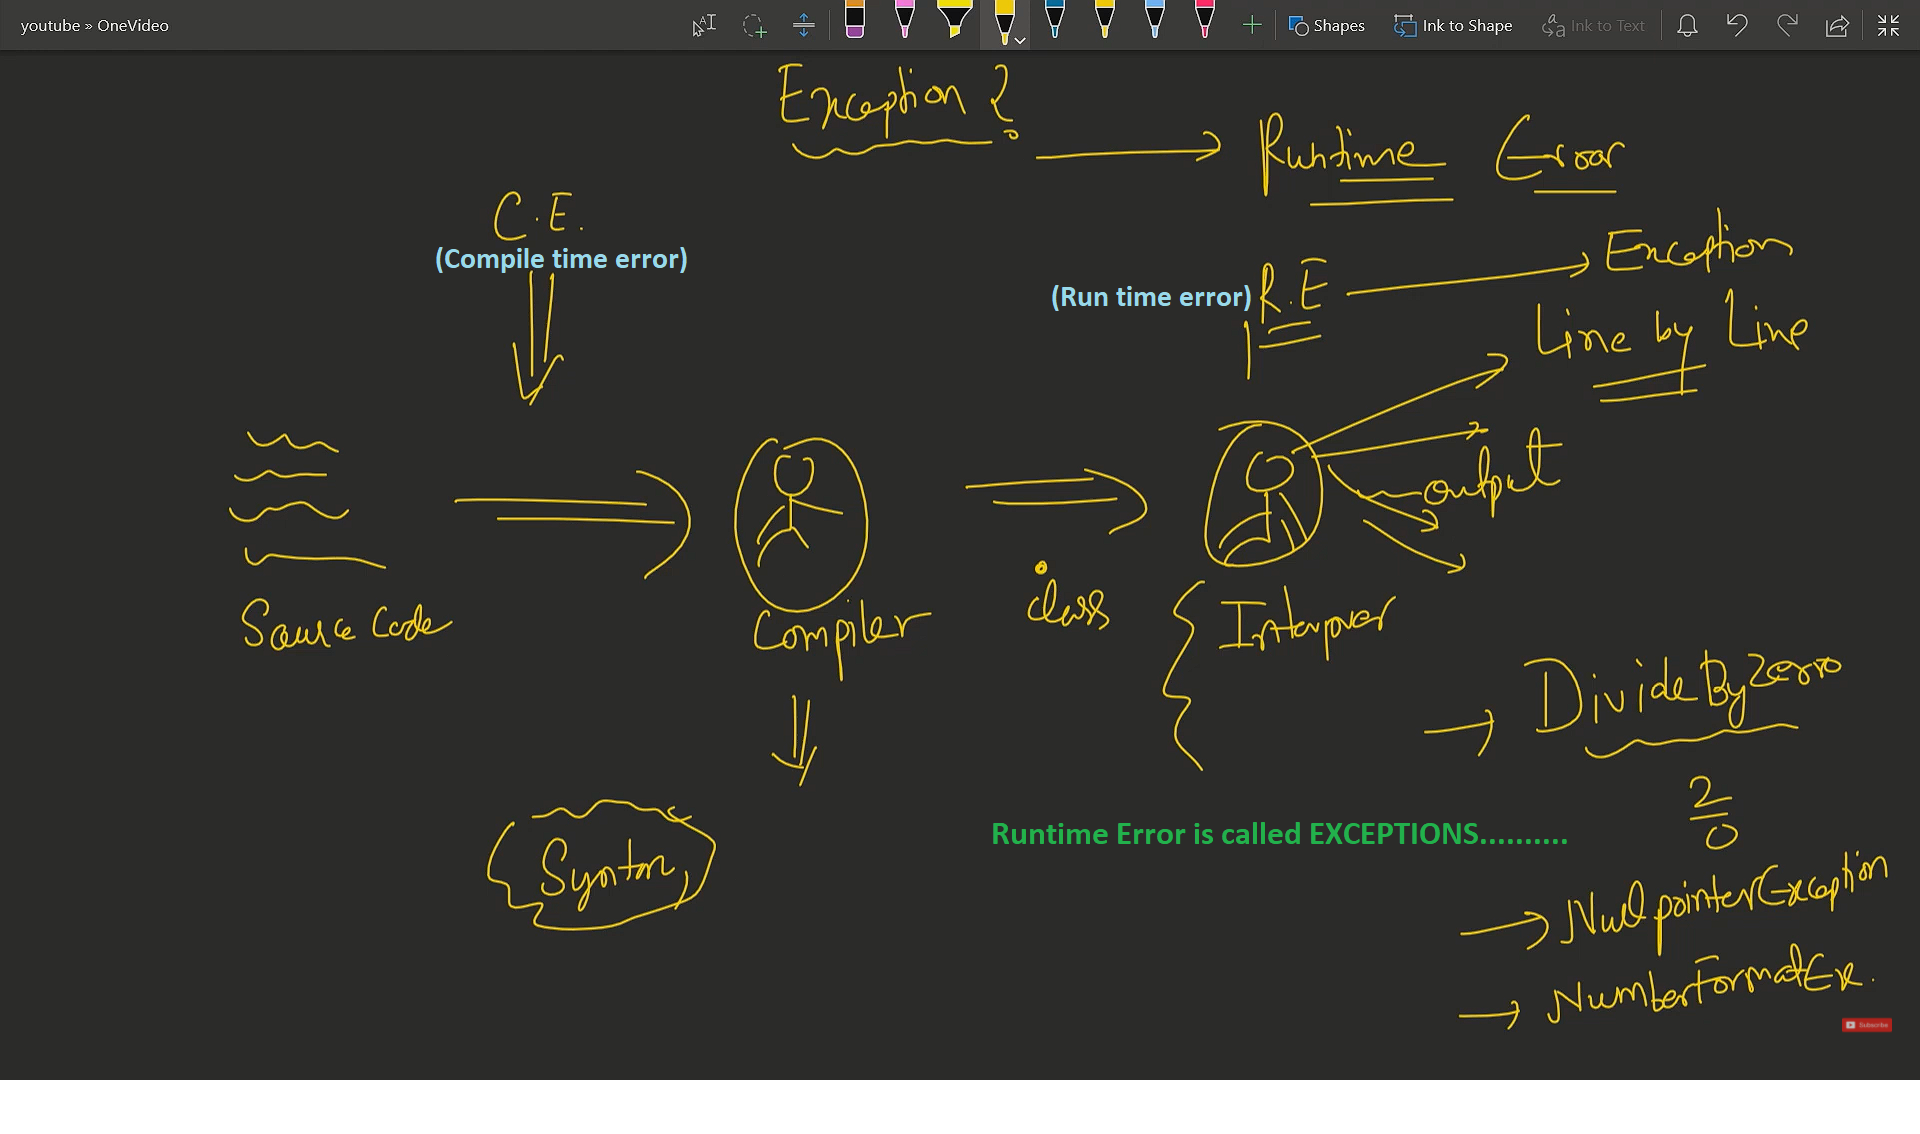 youtube » OneVideo
Shapes
Ink to Shape
Ink to Text
Exception ?
Runtime Error
C.E.
(Compile time error)
(Run time error) R.E
Exception
Line by Line
output
Source Code
Compiler
.class
Interpver
DivideByZero
2/0
Syntax
Runtime Error is called EXCEPTIONS..........
NullpointerException
NumberFormatEx.
Subscribe